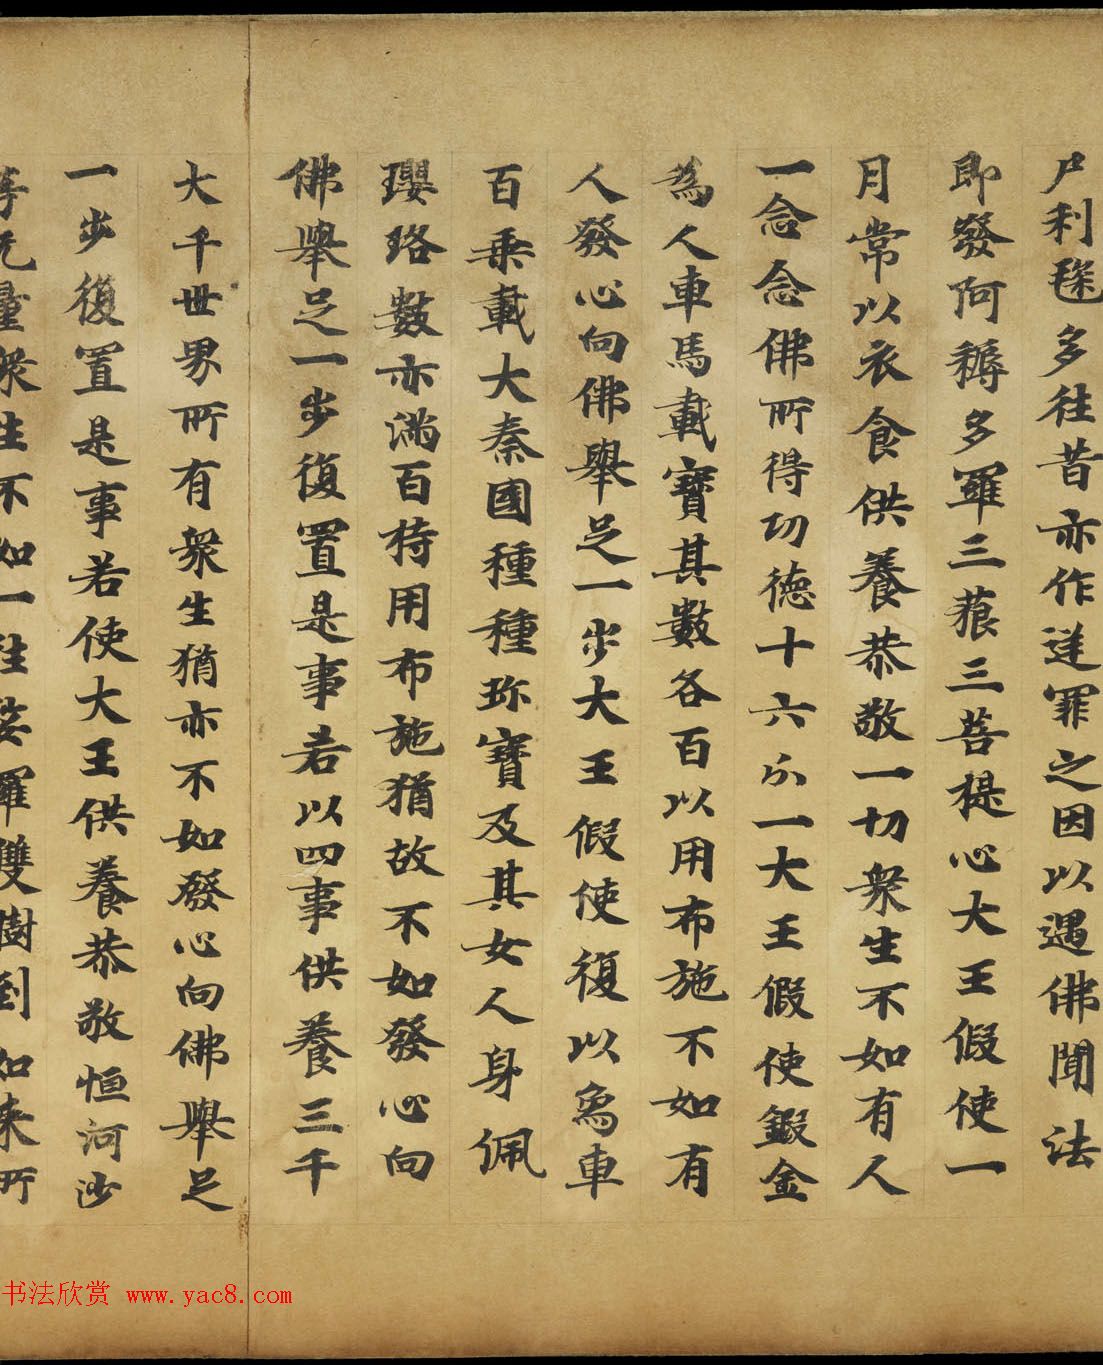 尸利毱多往昔亦作逆罪之因以遇佛聞法
即發阿耨多羅三藐三菩提心大王假使一
月常以衣食供養恭敬一切衆生不如有人
一念念佛所得功德十六分一大王假使鍛金
為人車馬載寶其數各百以用布施不如有
人發心向佛舉足一步大王假使復以象車
百乗載大秦國種種珎寶及其女人身佩
瓔珞數亦滿百持用布施猶故不如發心向
佛舉足一步復置是事若以四事供養三千
大千世界所有衆生猶亦不如發心向佛舉足
一步復置是事若使大王供養恭敬恒河沙
等无量衆生不如一往娑羅雙樹到如来所
书法欣赏 www.yac8.com